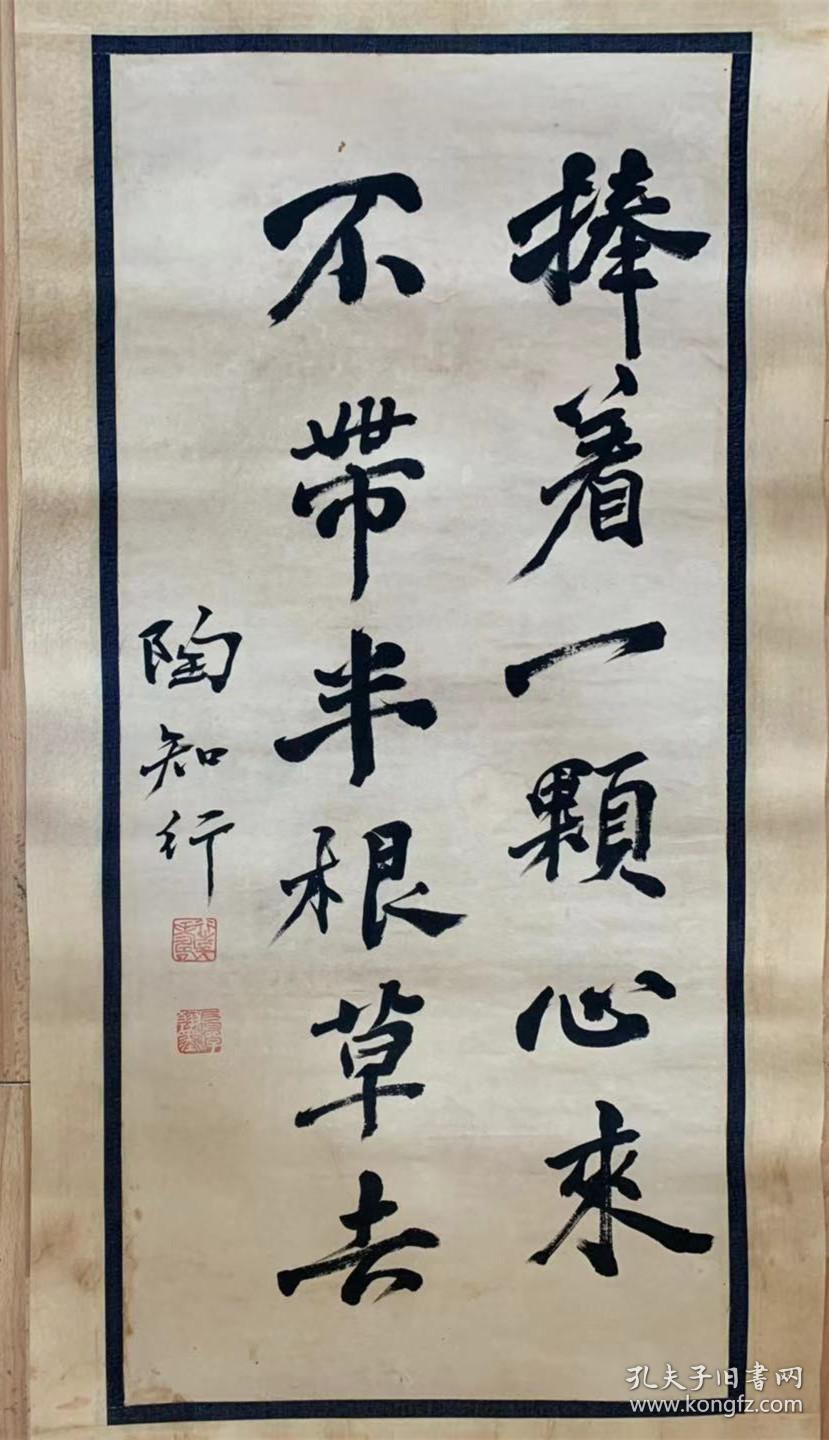 捧着一顆心來
不帶半根草去
陶知行
孔夫子旧書网
www.kongfz.com